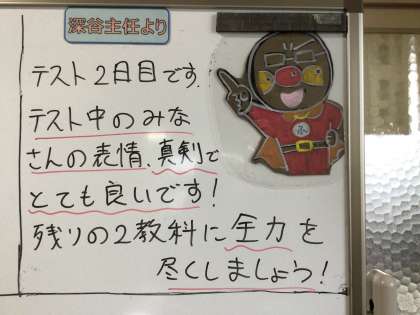 深谷主任より
テスト2日目です.
テスト中のみな
さんの表情、真剣で
とても良いです!
残りの2教科に全力を
尽くしましょう!